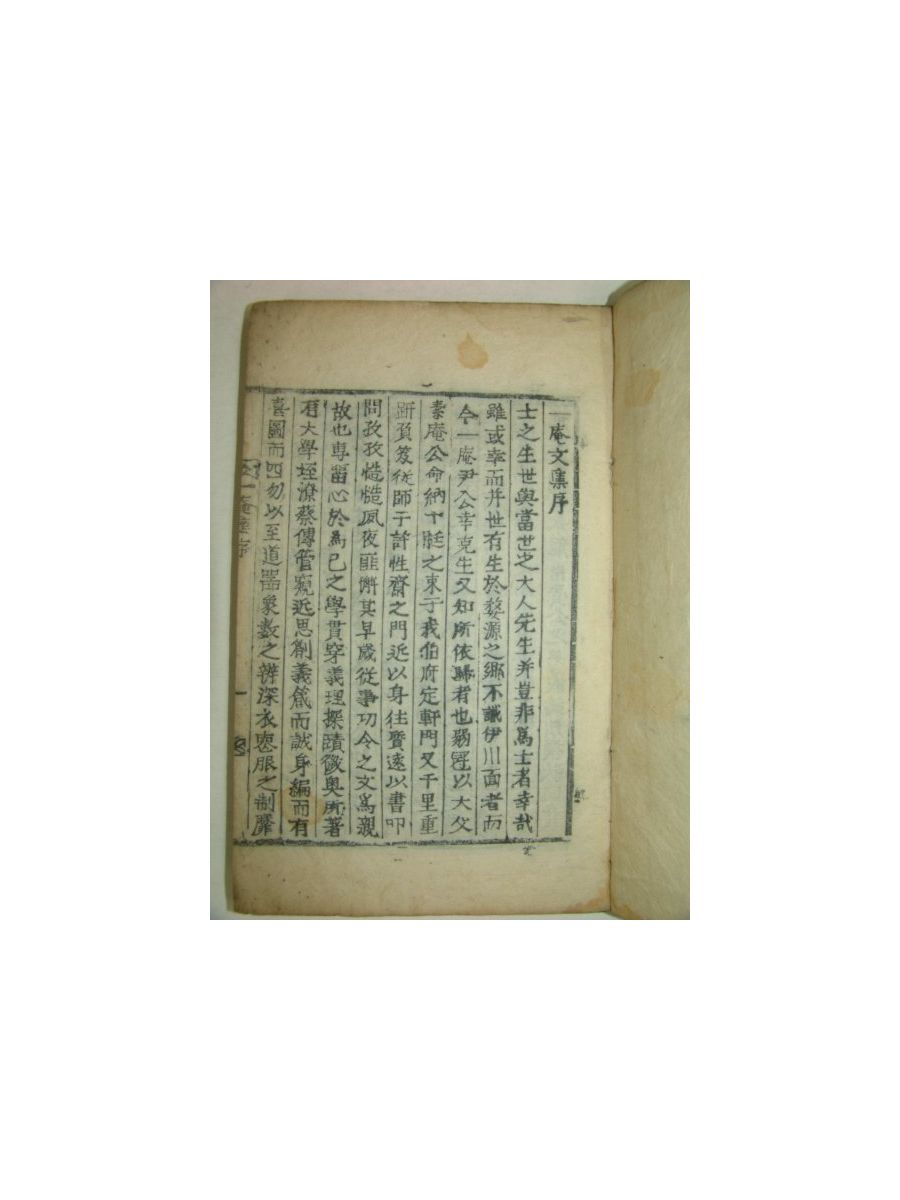 一庵文集序
士之生世與當世之大人先生并豈非爲士者幸哉
雖或幸而并世有生於婺源之鄉不識伊川面者而
今一庵尹公幸克生又知所依歸者也弱冠以大父
素庵公命納十脡之束于我伯府定軒門又千里重
趼負笈從師于許性齋之門近以身往質遠以書叩
問孜孜慥慥夙夜匪懈其早歲從事功令之文爲親
故也專留心於爲己之學貫穿義理探賾微奧所著
有大學蔡傳管窺近思劄義箴而誠身編而有
喜圖而四勿以至道器象數之辨深衣喪服之制靡
一庵集序
一